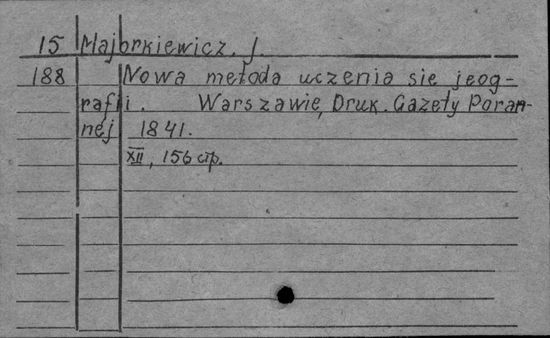 15 Majorkiewicz, J.
188 Nowa metoda uczenia sie jeog-
rafii. Warszawie, Druk. Gazety Poran-
nej 1841.
XII, 156 стр.